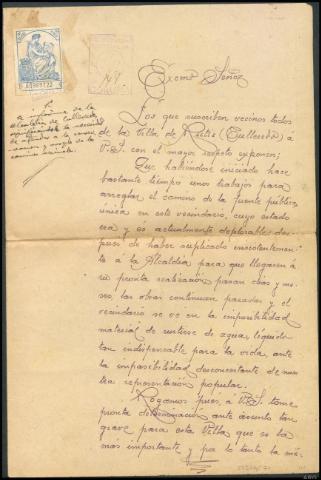 Excmo Señor
Los que suscriben vecinos todos
de la Villa de (Culleredo) á
V.S. con el mayor respeto exponen:
Que habiéndose iniciado hace
bastante tiempo unos trabajos para
arreglar el camino de la fuente pública
única en este vecindario, cuyo estado
era y és actualmente deplorable des
pues de haber suplicado insistentemen
te á la Alcaldía para que llegasen á
su pronta realización pasan dias y me
ses, las obras continuan paradas y el
vecindario se ve en la imposibilidad
material de surtirse de agua, liquido
tan indispensable para la vida, ante
la impasibilidad desconcertante de nues
tra representación popular.
Rogamos pués á V.S. tome
pronta determinación ante asunto tan
grave para esta Villa que és la
más importante y por lo tanto la má
á informe de la
Alcaldía de Culleredo
la necesidad
de
y arreglo de los
caminos vecinales